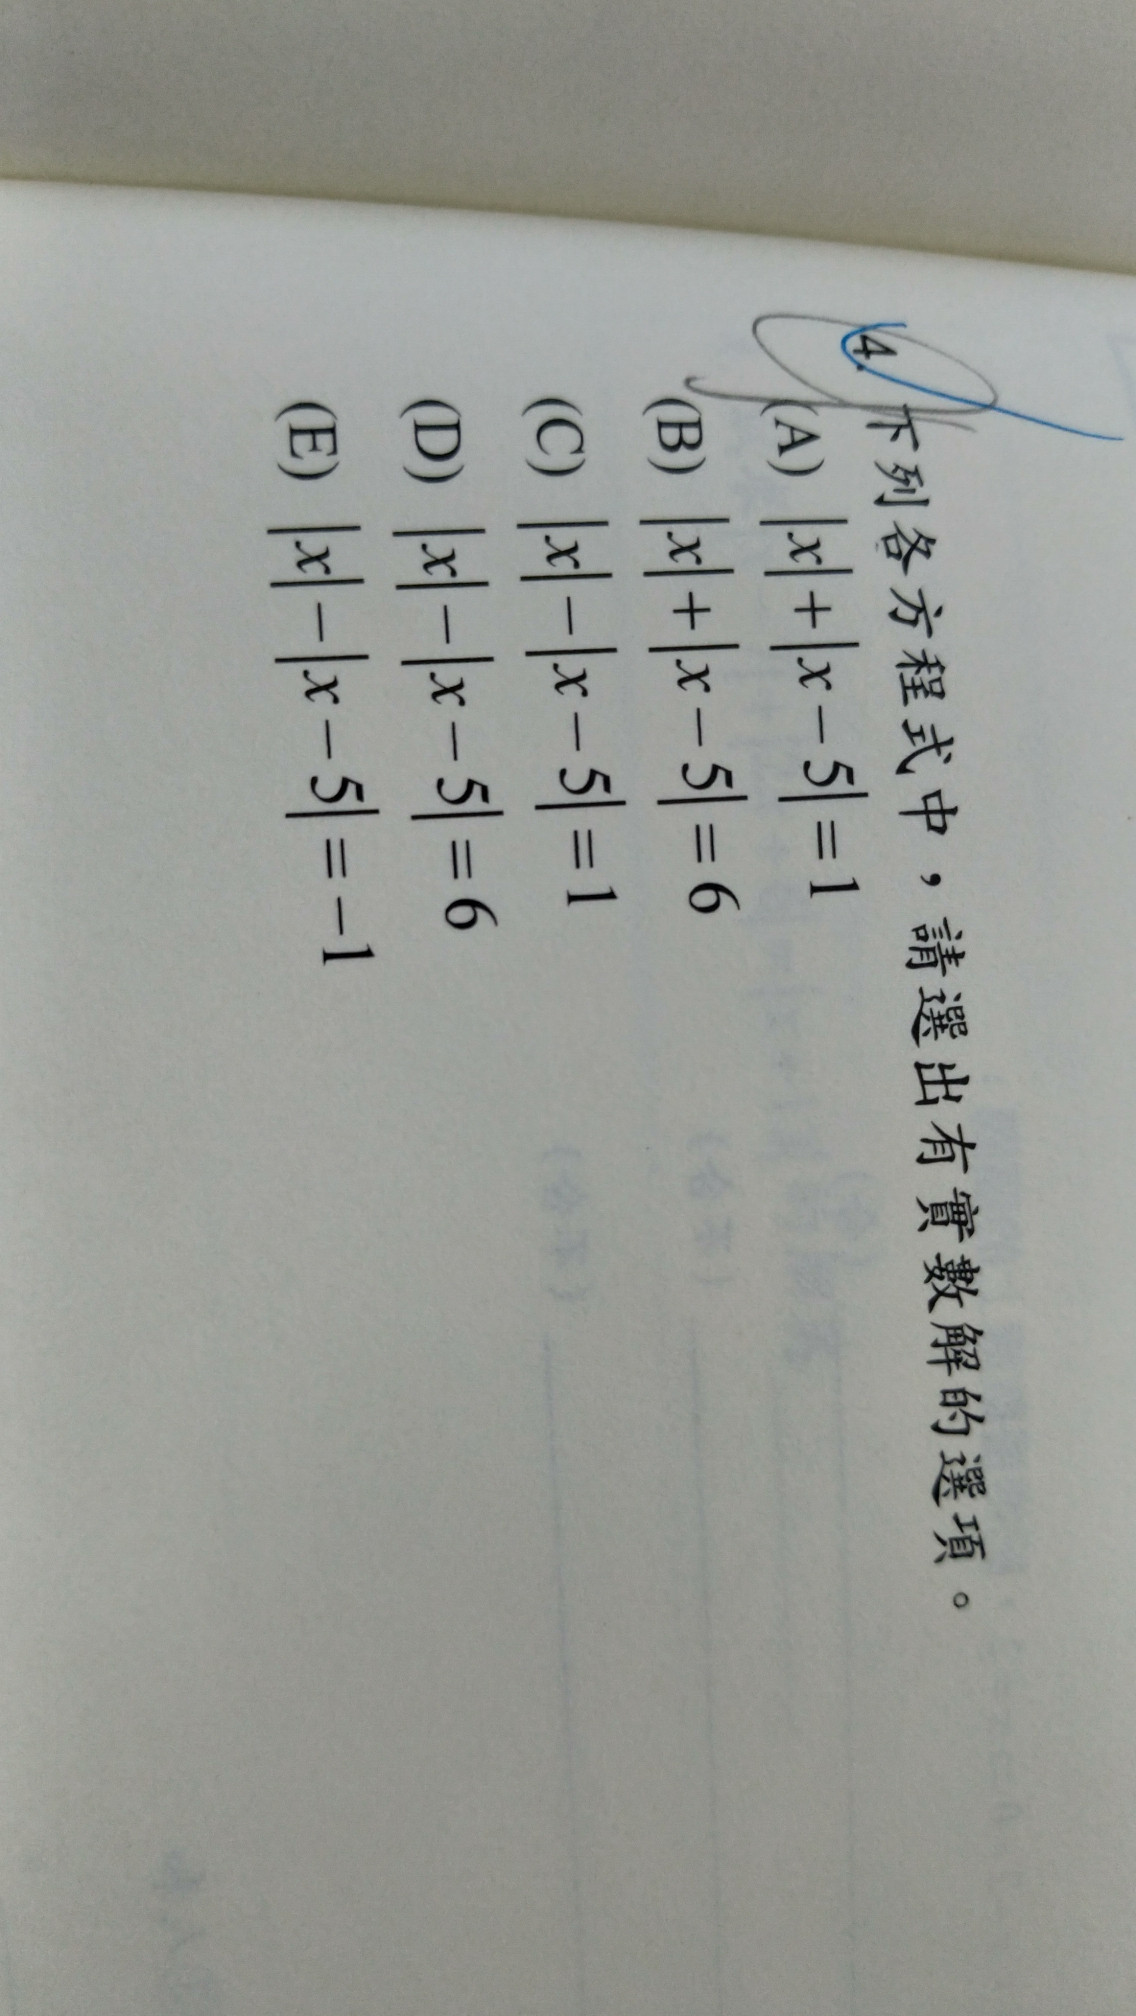 4. 下列各方程式中，請選出有實數解的選項。
(A) |x|+|x−5|=1
(B) |x|+|x−5|=6
(C) |x|−|x−5|=1
(D) |x|−|x−5|=6
(E) |x|−|x−5|=−1